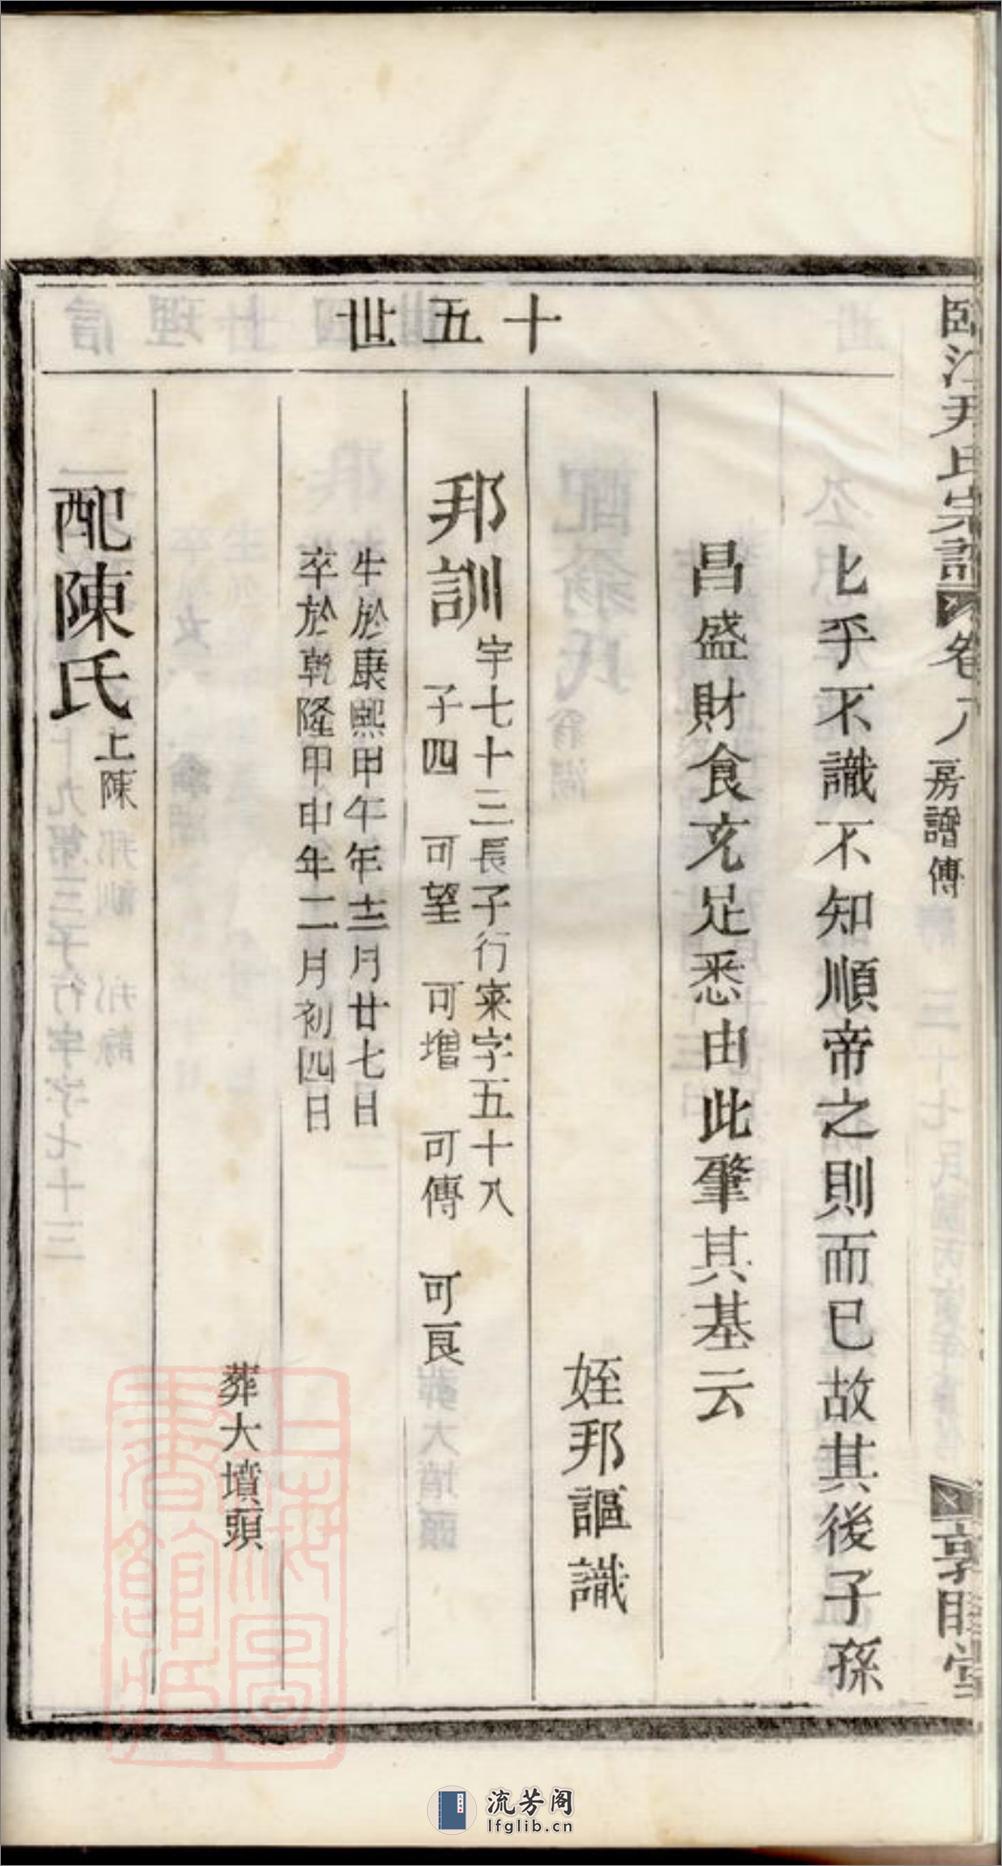 臨江尹氏宗譜 卷八 房譜傳 敦睦堂
十五世
匕乎不識不知順帝之則而已故其後子孫
昌盛財食充足悉由此肇其基云
姪邦謳識
邦訓
字七十三長子行寀字五十八
子四 可望 可增 可傳 可良
生於康熙甲午年十二月廿七日
卒於乾隆甲申年二月初四日
葬大墳頭
配陳氏上陳
上海圖書館藏
流芳阁
lfglib.cn